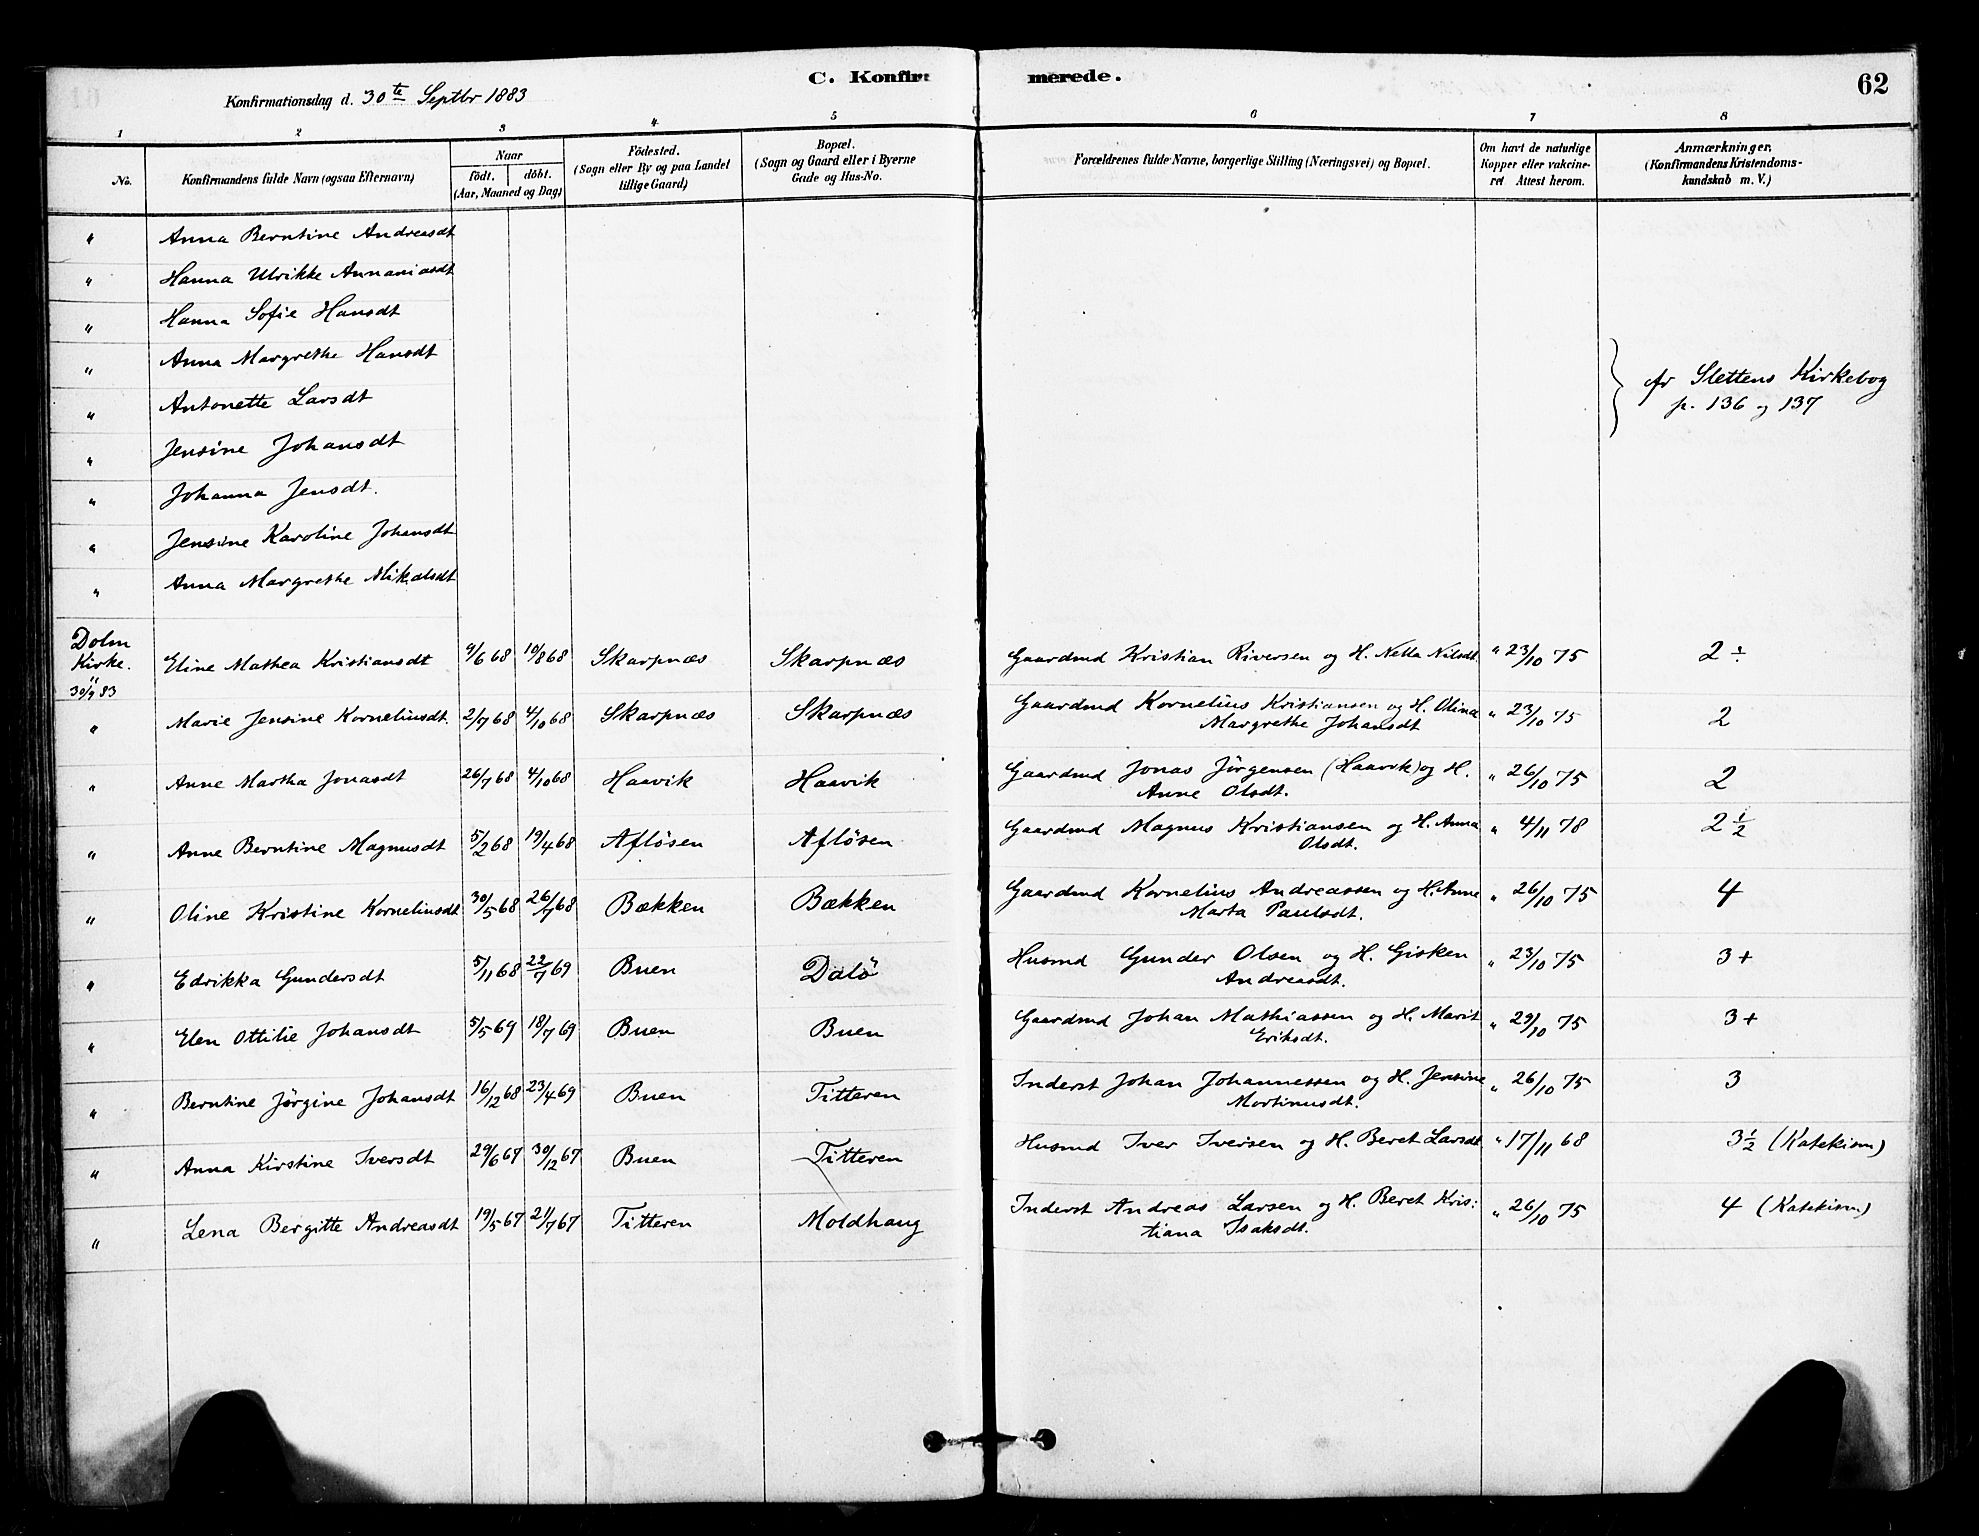 C. Konfirmerede. 62
Konfirmationsdag d. 30te Septbr 1883
1 2 3 4 5 6 7 8
No. Konfirmandens fulde Navn (ogsaa Efternavn) Naar födt. döbt. (Aar, Maaned og Dag) Födested. (Sogn eller By og paa Landet tillige Gaard) Bopæl. (Sogn og Gaard eller i Byerne Gade og Hus-No. Forældrenes fulde Navne, borgerlige Stilling (Næringsvei) og Bopæl. Om havt de naturlige Kopper eller vakcineret Attest herom. Anmærkninger. (Konfirmandens Kristendomskundskab m. V.)
" Anna Berntine Andreasdt
" Hanna Ulrikke Annaniasdt
" Hanna Sofie Hansdt
" Anna Margrethe Hansdt
} af Slettens Kirkebog
" Antonette Larsdt
p. 136 og 137
" Jensine Johansdt
" Johanna Jensdt.
" Jensine Karoline Johansdt
" Anna Margrethe Mikalsdt
Dolm Kirke. " 30/9 83 Eline Mathea Kristiansdt 9/6 68 10/8 68 Skarpnæs Skarpnæs Gaardmd Kristian Riversen og H. Nella Nilsdt " 23/10 75 2 ÷
" Marie Jensine Korneliusdt. 2/7 68 4/10 68 Skarpnæs Skarpnæs Gaardmd Kornelius Kristiansen og H. Olina " 23/10 75 2
Margrethe Johansdt
" Anne Martha Jonasdt 26/7 68 4/10 68 Haavik Haavik Gaardmd Jonas Jørgensen (Haavik) og H. " 26/10 75 2
Anne Olsdt.
" Anne Berntine Magnusdt 5/2 68 19/4 68 Afløsen Afløsen Gaardmd Magnus Kristiansen og H. Anna " 4/11 78 2 1/2
Olsdt.
" Oline Kristine Korneliusdt 30/5 68 26/7 68 Bækken Bækken Gaardmd Kornelius Andreassen og H. Anne " 26/10 75 4
Marta Paulsdt.
" Edrikka Gundersdt 5/11 68 22/7 69 Buen Dolö Husmd Gunder Olsen og H. Gisken " 23/10 75 3+
Andreasdt.
" Elen Ottilie Johansdt 5/5 69 18/7 69 Buen Buen Gaardmd Johan Mathiassen og H. Marit " 29/10 75 3+
Eriksdt.
" Berntine Jørgine Johansdt 16/12 68 23/4 69 Buen Titteren Inderst Johan Johannessen og H. Jensine " 26/10 75 3
Mortinusdt.
" Anna Kirstine Iversdt 29/6 67 30/12 67 Buen Titteren Husmd Iver Iversen og H. Beret Larsdt " 17/11 68 3 1/2 (Katekism)
" Lena Bergitte Andreasdt 19/5 67 21/7 67 Titteren Moldhaug Inderst Andreas Larsen og H. Beret Kris: " 26/10 75 4 (Katekism)
tiana Isaksdt.